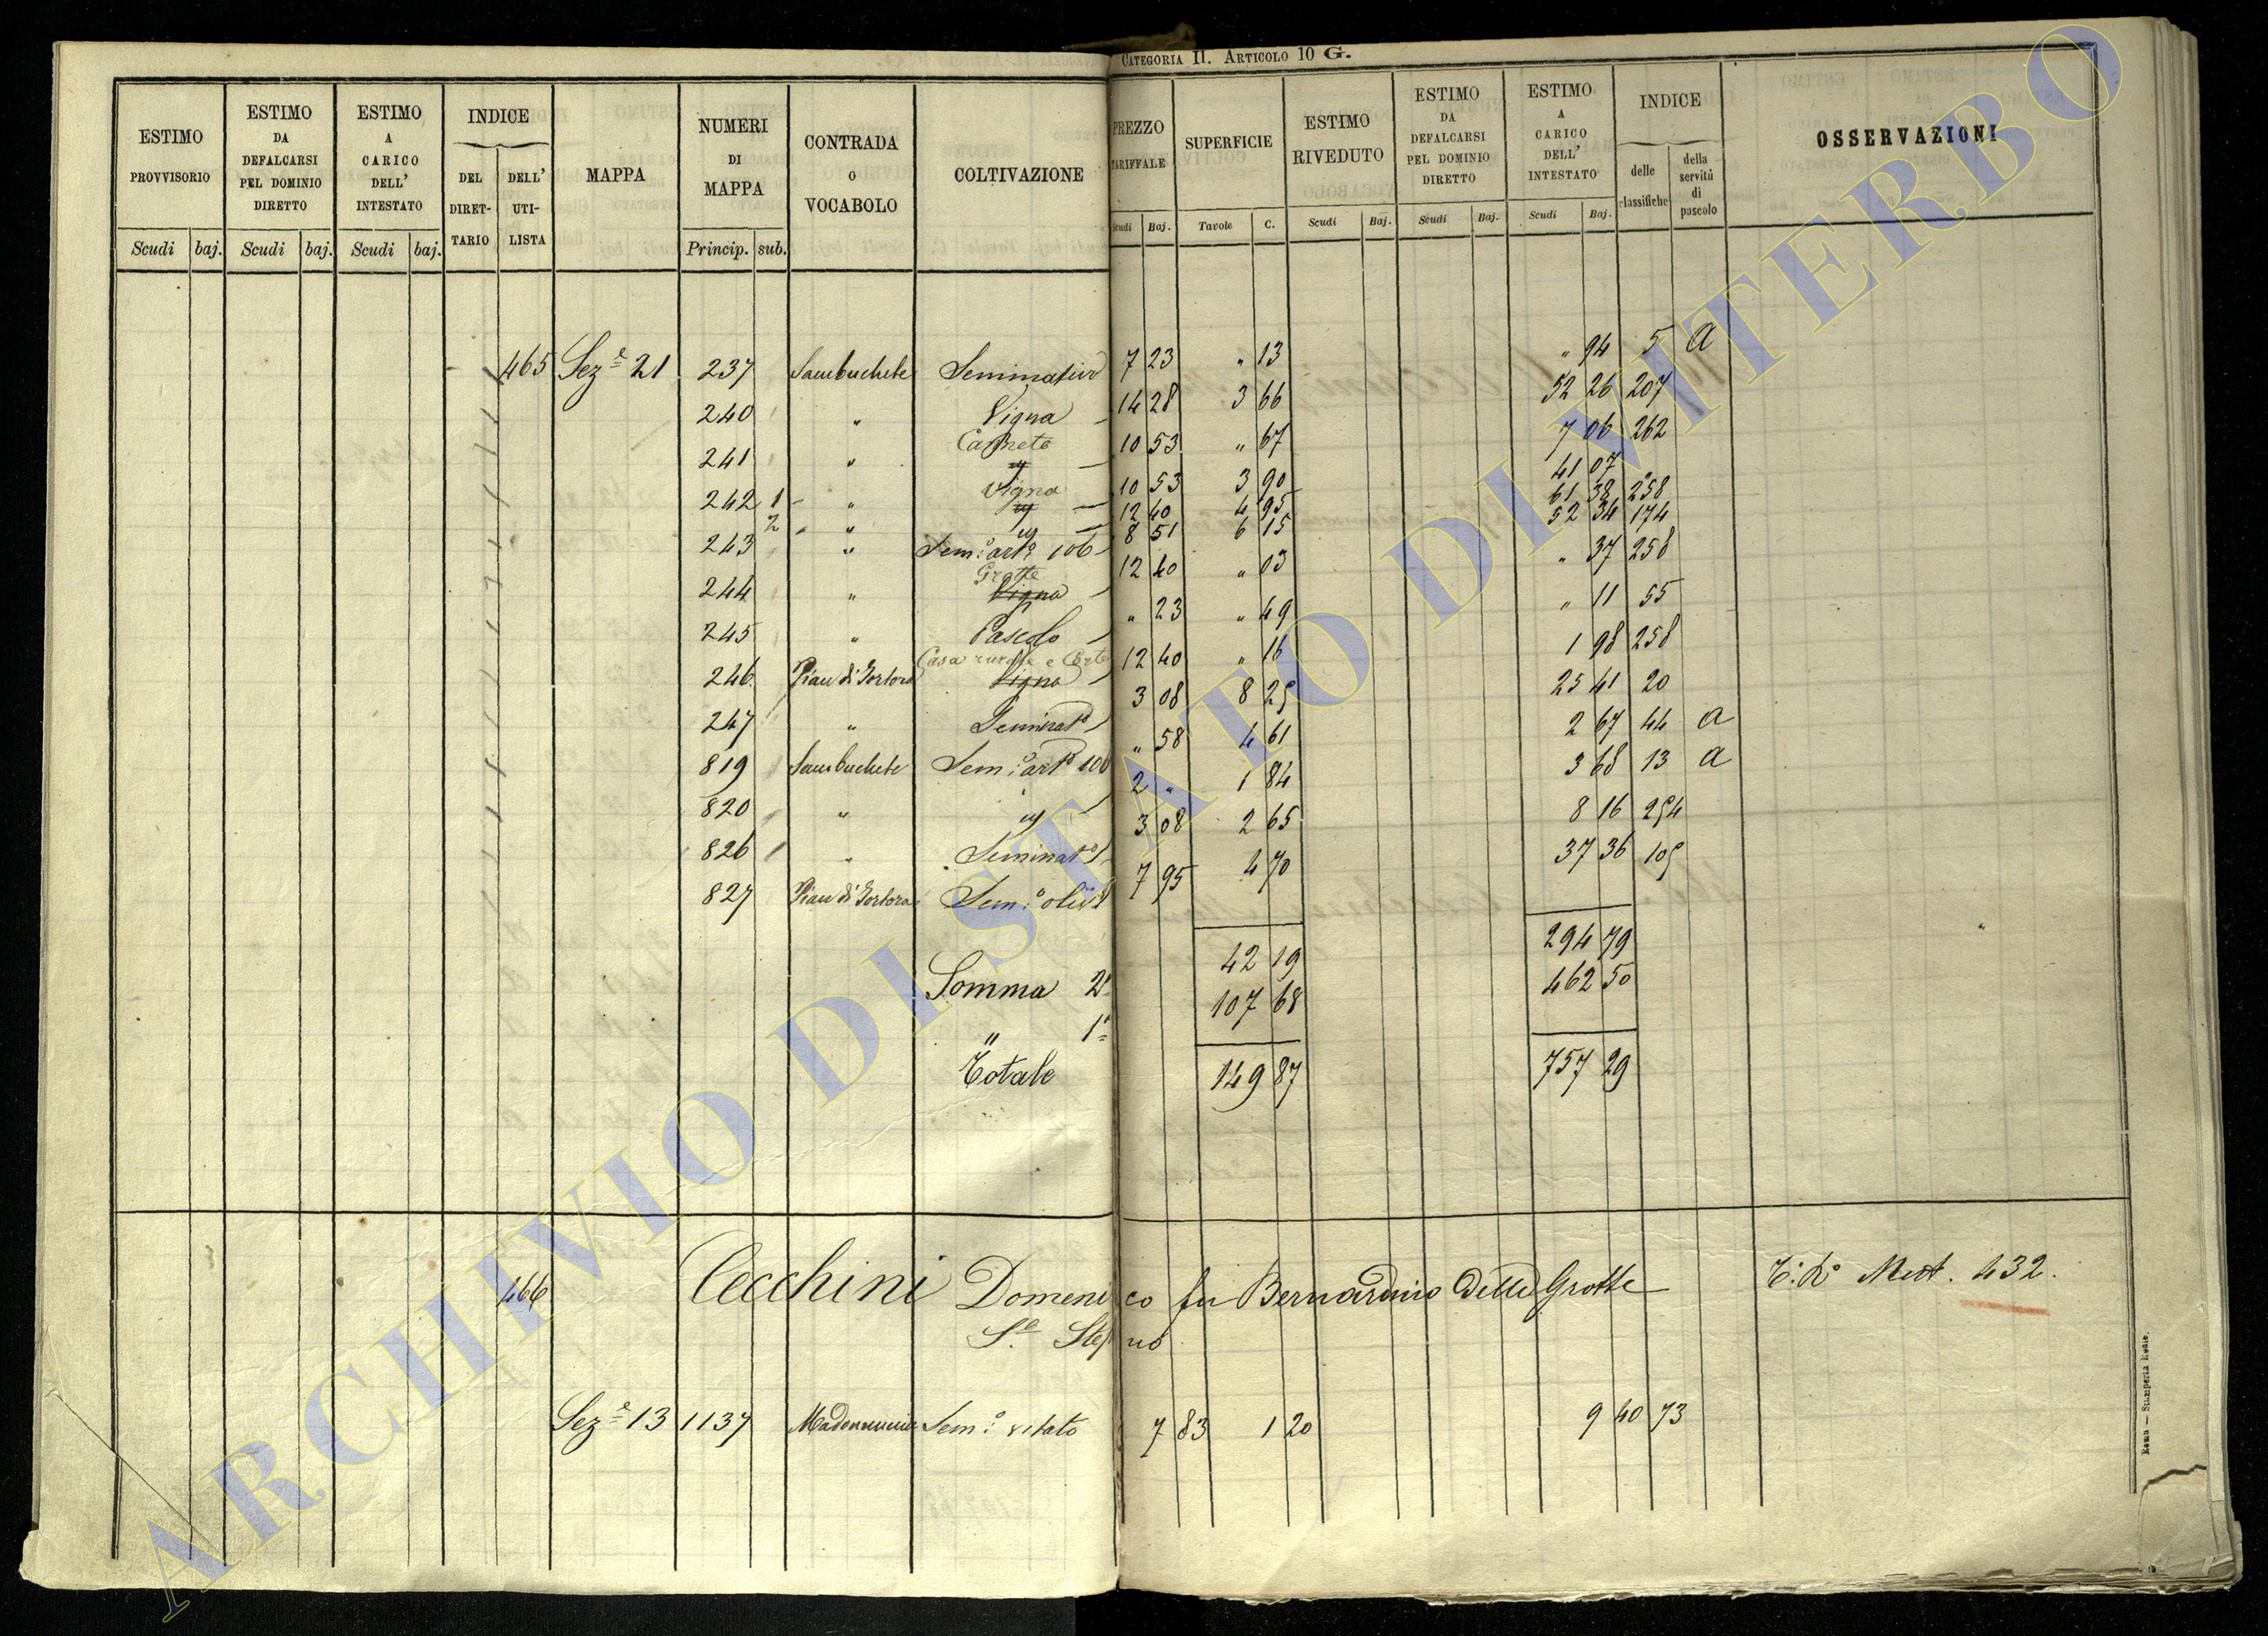 CATEGORIA II. ARTICOLO 10 G.
ESTIMO PROVVISORIO Scudi baj.
ESTIMO DA DEFALCARSI PEL DOMINIO DIRETTO Scudi baj.
ESTIMO A CARICO DELL' INTESTATO Scudi baj.
INDICE DEL DIRET-TARIO DELL' UTI-LISTA
MAPPA
NUMERI DI MAPPA Princip. sub.
CONTRADA O VOCABOLO
COLTIVAZIONE
PREZZO TARIFFALE Scudi Baj.
SUPERFICIE Tavole C.
ESTIMO RIVEDUTO Scudi Baj.
ESTIMO DA DEFALCARSI PEL DOMINIO DIRETTO Scudi Baj.
ESTIMO A CARICO DELL' INTESTATO Scudi Baj.
INDICE delle classifiche della servitù di pascolo
OSSERVAZIONI
465 Sez.e 21 237 Sambuchete Seminativo 7 23 " 13 " 94 5 a
240 " Vigna 14 28 3 66 52 26 207
241 " Canneto 10 53 " 67 7 06 262
242 1 " Vigna 10 53 3 90 41 07 "
2 " 12 40 4 95 61 38 258
243 " Sem.o art.o 106 8 51 6 15 52 34 174
244 " Grotte Vigna 12 40 " 03 " 37 258
245 " Pascolo " 23 " 49 " 11 55
246 Pian di Tortora Casa rurale e Corte Vigna 12 40 " 16 1 98 258
247 " Seminat.o 3 08 8 25 25 41 20
819 Sambuchete Sem.o art.o 106 " 58 4 61 2 67 44 a
820 " 2 " 1 84 3 68 13 a
826 " Seminat.o 3 08 2 65 8 16 254
827 Pian di Tortora Sem.o oliv.o 7 95 4 70 37 36 105
Somma 2a 42 19 294 79
" 1a 107 68 462 50
Totale 149 87 757 29
466 Cecchini Domenico fu Bernardino Delle Grotte T. R. Mist. 432.
S.o Stef no
Sez.e 13 1137 Madonnina Sem.o vitato 7 83 1 20 9 40 73
Roma — Stamperia Reale.
ARCHIVIO DI STATO DI VITERBO